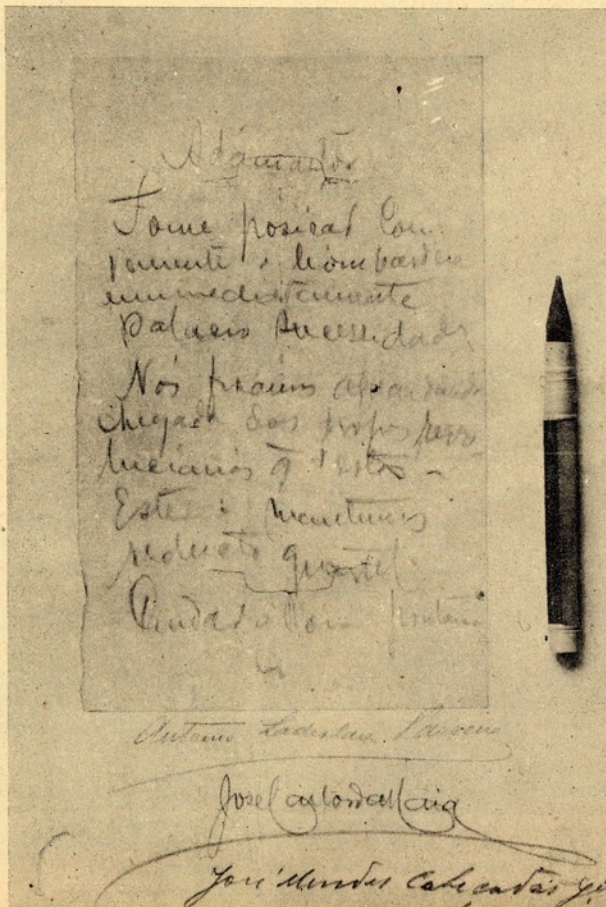 Adamastor
Tome posicaō con
temente e bombardeie
immediatamente
Palacio Necessidades
Nós ficámos aguardando
chegada das tropas revo
lucianas q̃
Este: manetemos
reducto quartel.
Cuidado
Antonio Ladislau Parreira
José Carlos da Maia
José Mendes Cabeçadas